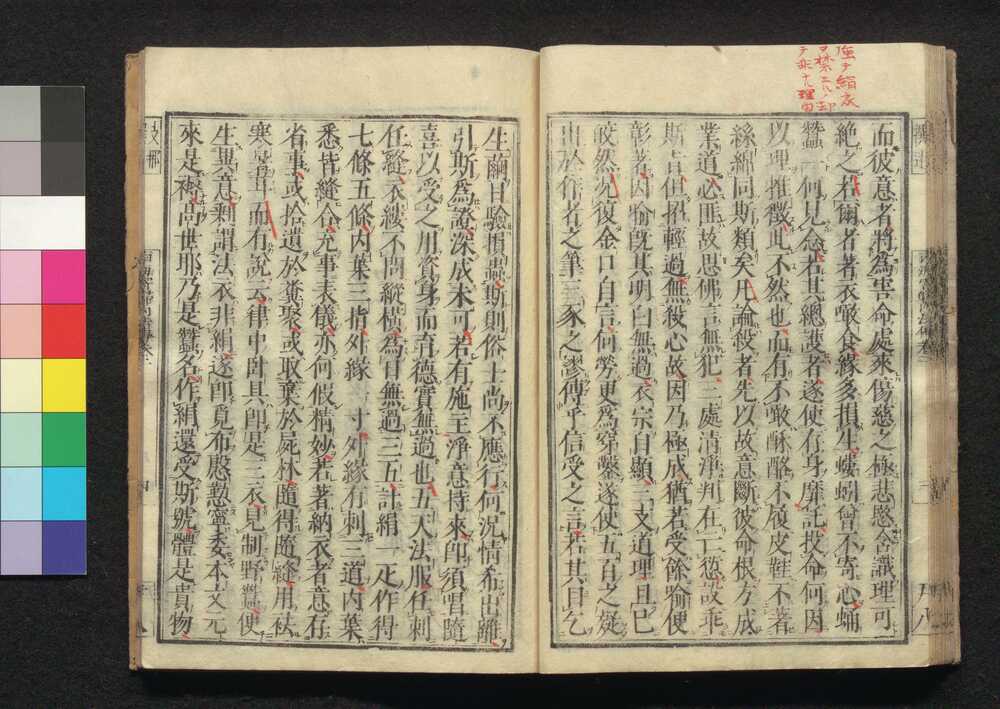 强チ絹衣
ヲ禁ズル却
テ非ナル理由
而彼意者將爲害命處來傷慈之極悲愍含識理可
絶之若爾者著衣噉食緣多損生螻蚓曾不寄心蛹
蠶一何見念若其總護者遂使存身靡託投命何因
以理推徵此不然也而有不噉酥酪不履皮鞋不著
絲綿同斯類矣凡論殺者先以故意斷彼命根方成
業道必匪故思佛言無犯三處清淨判在亡愆設乖
斯旨但招輕過無殺心故因乃極成猶若受餘喻便
彰著因喻既其明白無過衣宗自顯三支道理且已
皎然况復金口自言何勞更爲穿鑿遂使五百之疑
出於作者之筆三豕之謬傳乎信受之言若其自乞
生繭目驗損蟲斯則俗士尚不應行何況情希出離
引斯爲證深成未可若有施主淨意持來卽須唱隨
喜以受之用資身而育德實無過也五天法服任刺
任縫衣縷不問縱橫爲日無過三五計絹一疋作得
七條五條内葉三指外緣一寸外緣有刺三道内葉
悉皆縫合充事表儀亦何假精妙若著納衣者意存
省事或拾遺於糞聚或取棄於屍林隨得隨縫用袪
寒暑耳而有說云律中卧具卽是三衣見制野蠶便
生異意剩謂法衣非絹遂卽覓布慇懃寧委本文元
來是褥高世耶乃是蠶名作絹還受斯號體是貴物